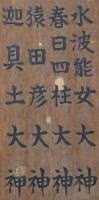 水波能女大神
春日四柱大神
猿田彦大神
迦具土大神